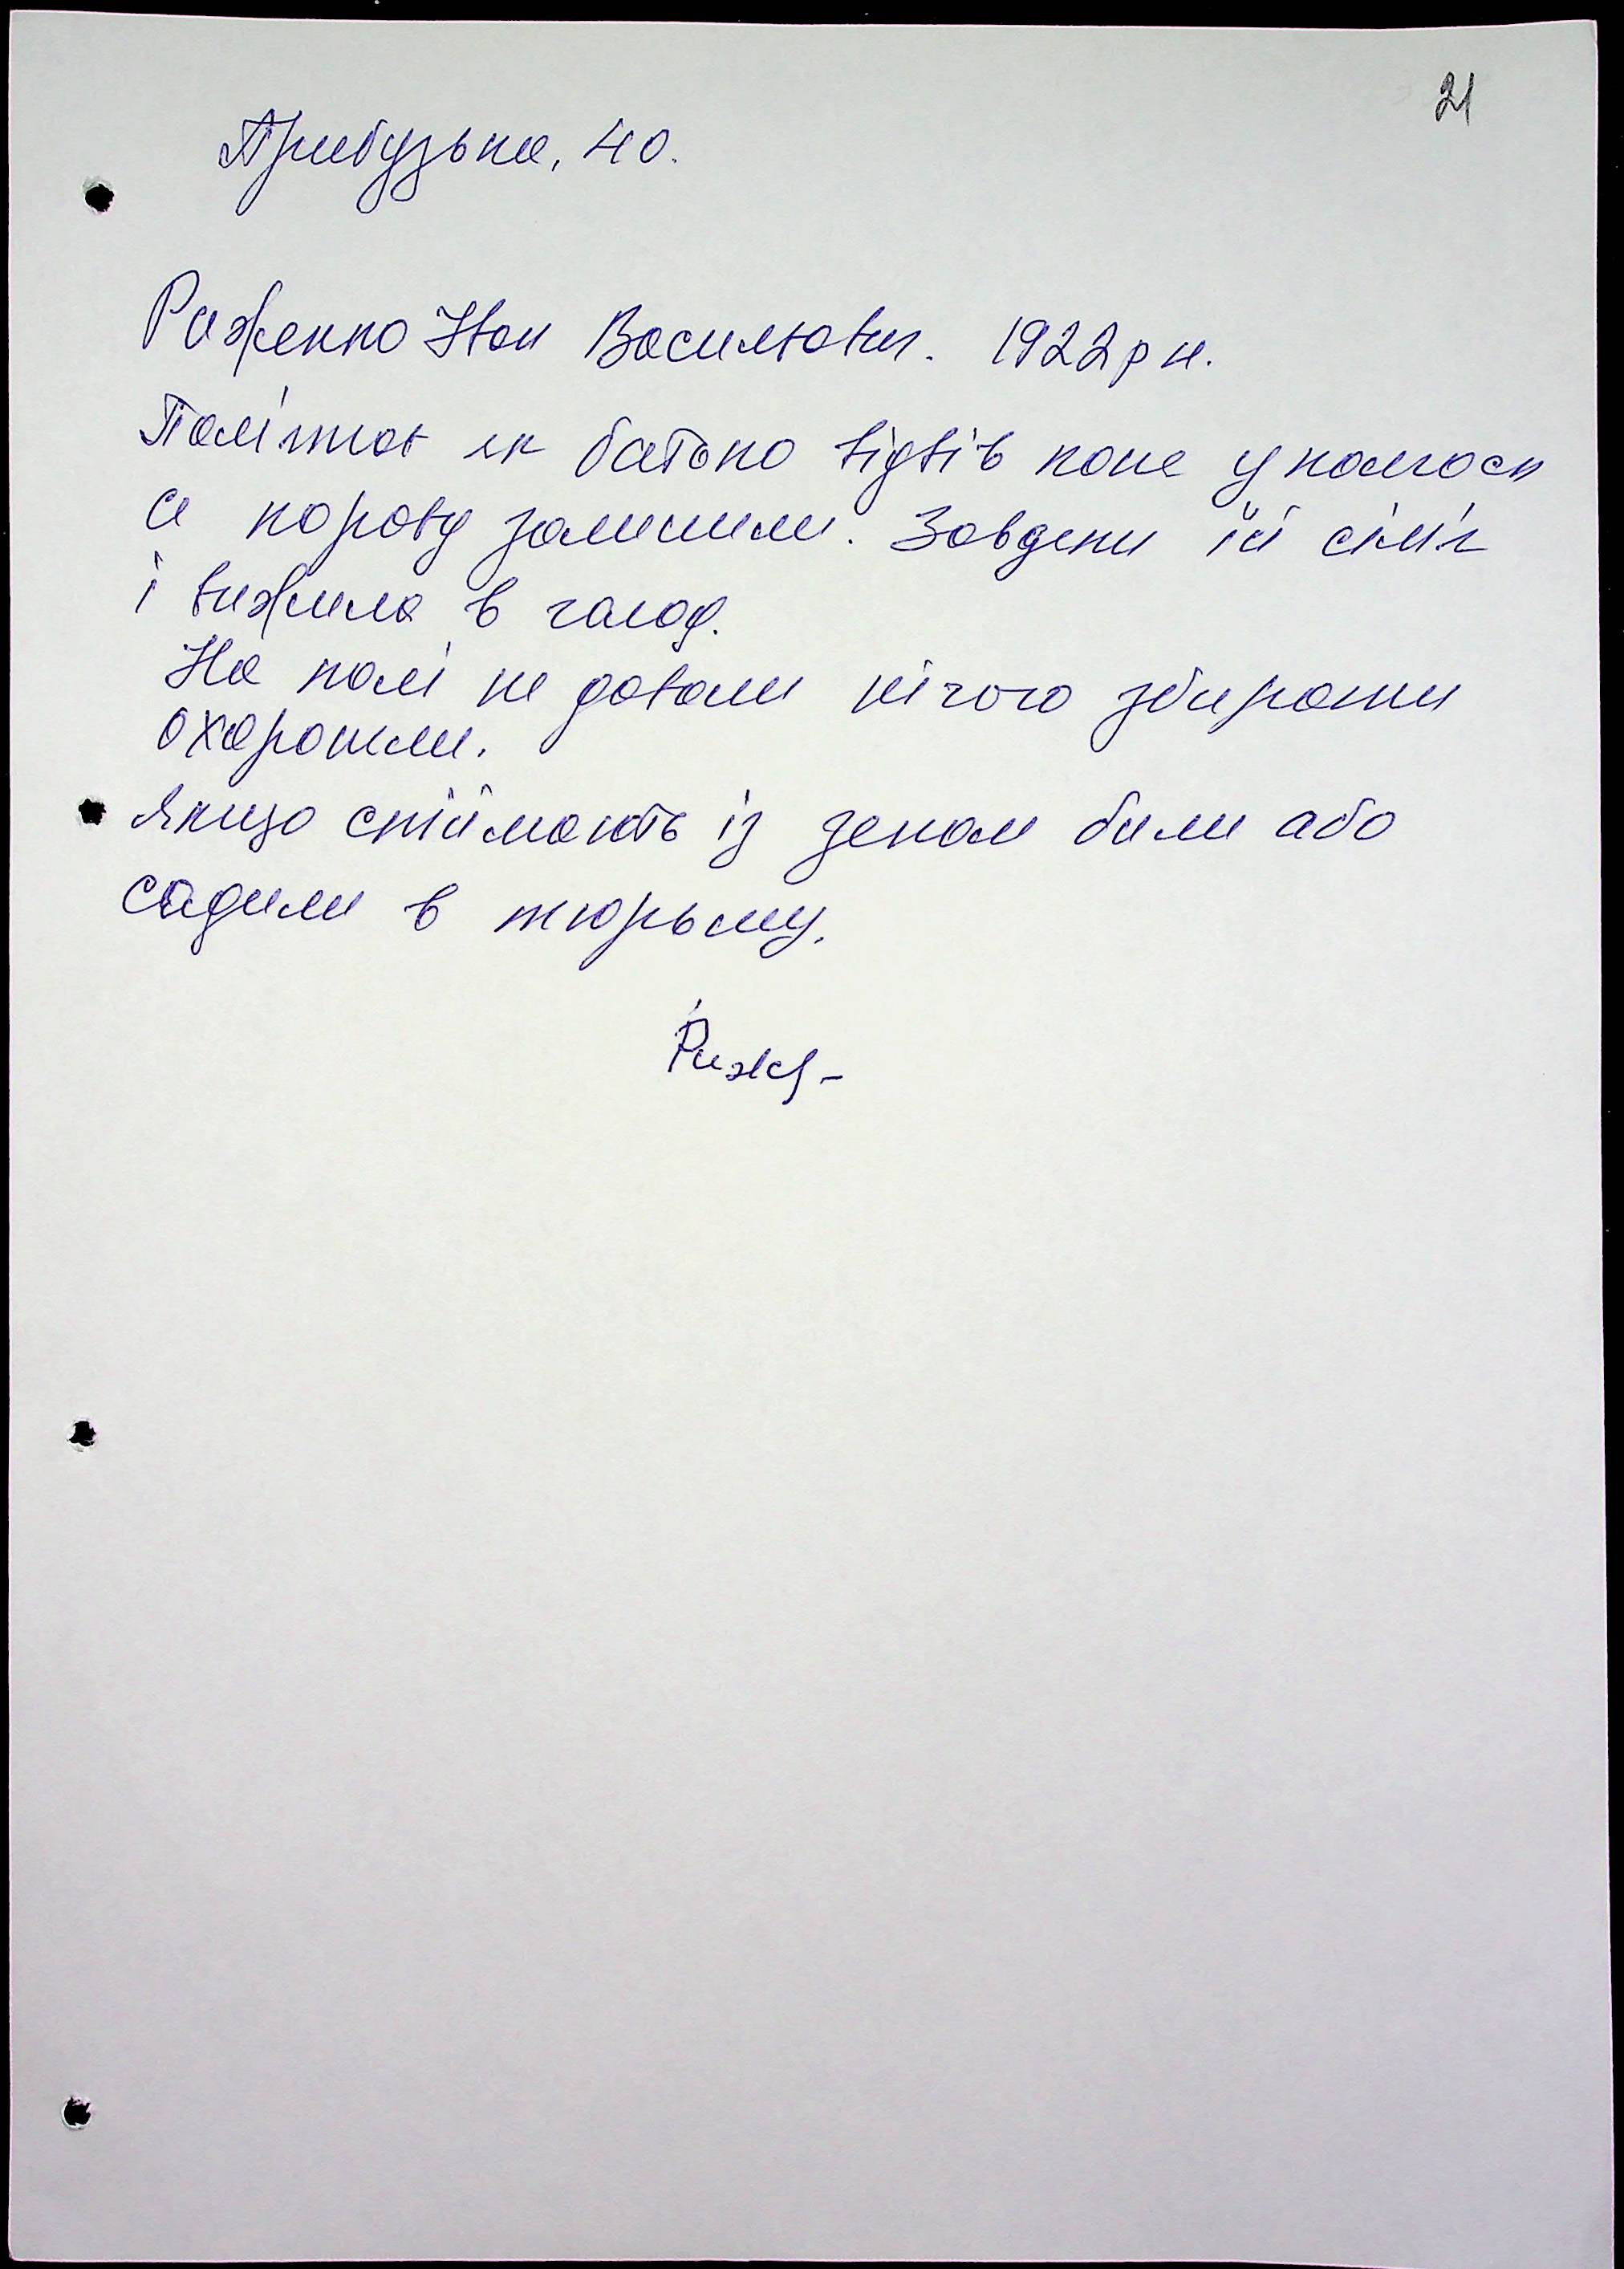 21
Прибузька, 40.
Риженко Іван Васильович. 1922 р н.
Пам'ятаю як батько відвів коне у колгосп
а корову залишили. Завдяки їй сім'я
і вижила в голод.
На полі не давали нічого збирати
охороняли.
Якщо спіймають із зеном били або
садили в тюрьму.